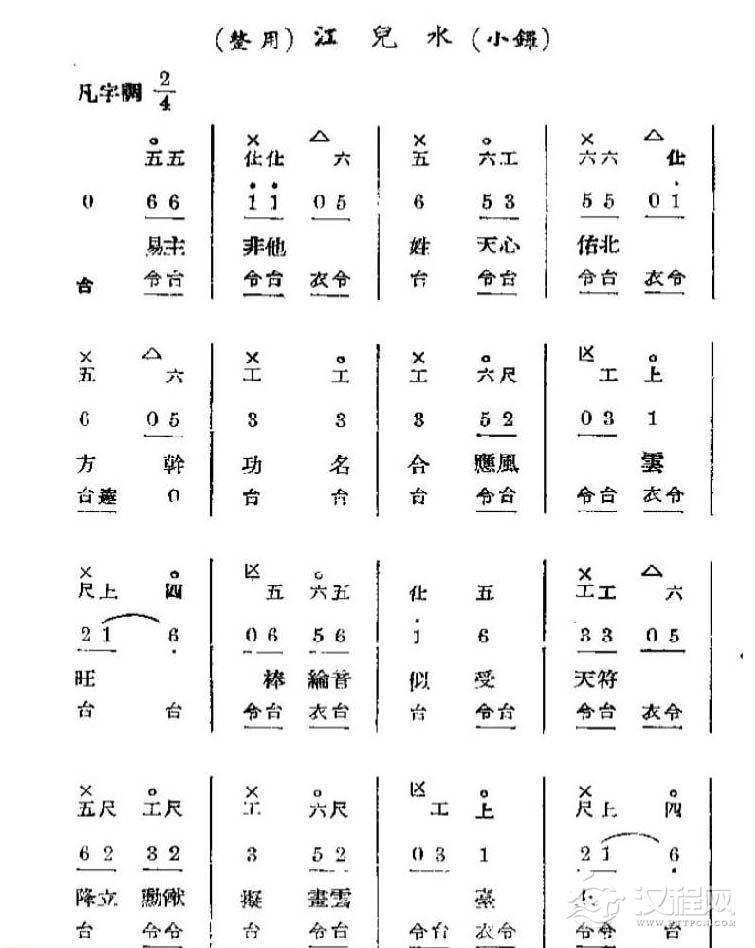 (整用) 江兒水 (小鑼)
凡字調 2/4
五五 仩仩 六 五 六工 六六 仩
0 6 6 1 1 0 5 6 5 3 5 5 0 1
易主 非他 姓 天心 佑北
台 令台 令台 衣令 台 令台 令台 衣令
五 六 工 工 工 六尺 工 上
6 0 5 3 3 3 5 2 0 3 1
方 幹 功 名 合 應風 雲
台 0 台 台 台 令台 令台 衣令
尺上 四 五 六五 仩 五 工工 六
2 1 6 0 6 5 6 1 6 3 3 0 5
旺 捧 綸音 似 受 天符
台 台 令台 衣台 台 令台 令台 衣令
五尺 工尺 工 六尺 工 上 尺上 四
6 2 3 2 3 5 2 0 3 1 2 1 6
降立 勳猷 擬 畫雲 臺
台 令令 台 令台 令台 衣令 台 台
汉程网
HTTPCN.COM